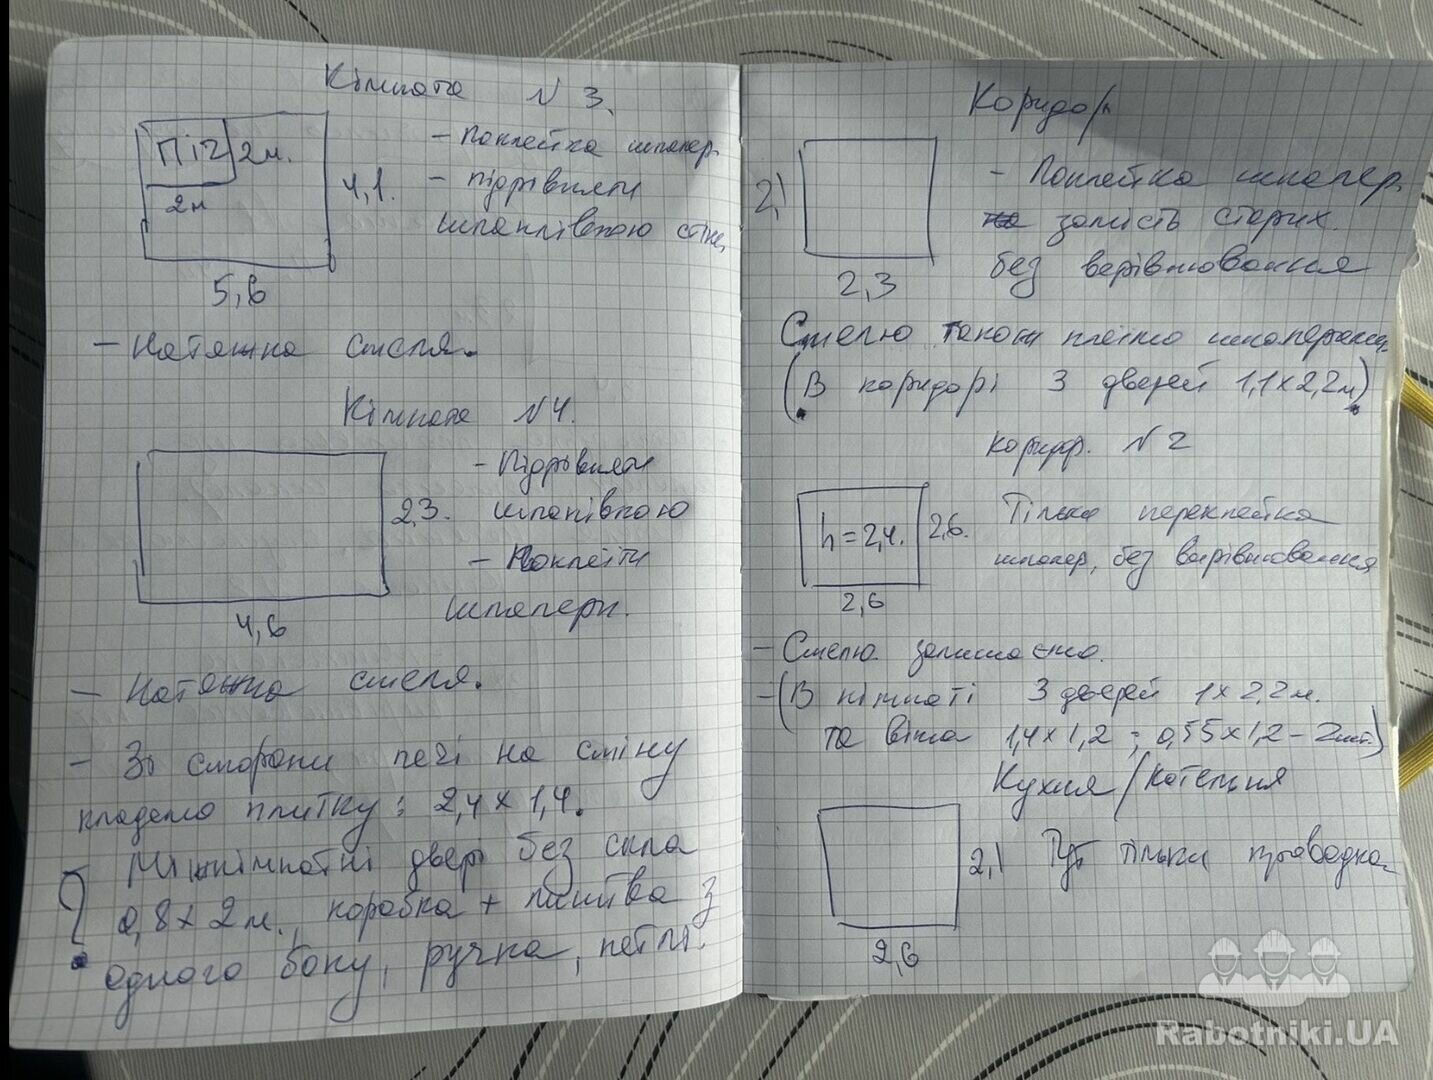 Кімната №3.
ПіЧ 2м.
2м
4,1.
5,6
- Поклейка шпалер.
- підрівняти
шпаклівкою стіни
- Натяжна стеля.
Кімната №4.
2,3.
4,6
- Підрівняти
шпаклівкою
- Поклеїти
шпалери.
- Натяжна стеля.
- Зі сторони печі на стіну
кладемо плитку: 2,4 x 1,4.
Міжкімнатні двері без скла
0,8 x 2м., коробка + лиштва з
одного боку, ручка, петлі.
Коридор
2,1
2,3
- Поклейка шпалер.
замість старих.
без верівнювання
Стелю також клеїмо шпалерами.
(В коридорі 3 дверей 1,1 x 2,2м)
коридор. №2
h = 2,4.
2,6.
2,6
Тільки переклейка
шпалер, без вирівнювання
- Стелю залишаємо.
- (В кімнаті 3 дверей 1 x 2,2м.
та вікна 1,4 x 1,2 ; 0,55 x 1,2 - 2шт.)
Кухня/котельня
2,1
2,6
Тут тільки проводка
Rabotniki.UA